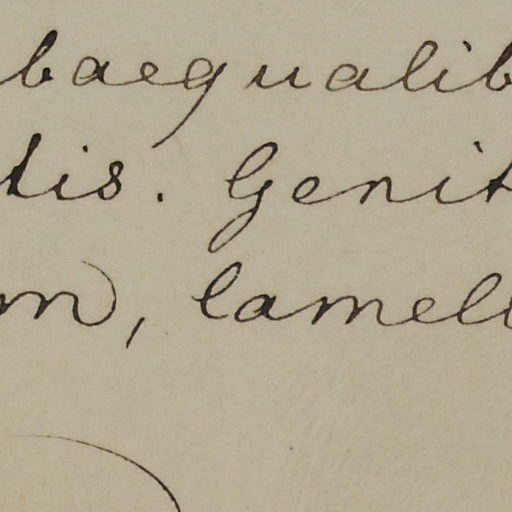 baequalib
tis. Genit
m, lamell